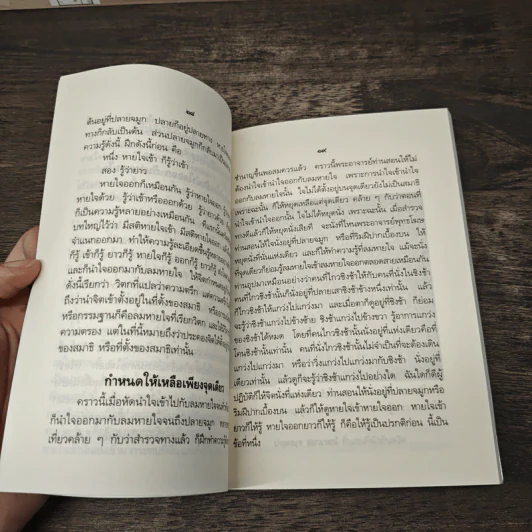 ๑๘
ต้นอยู่ที่ปลายจมูก ปลายก็อยู่ปลายทาง
ทางก็กลับเป็นต้น ส่วนปลายจมูกก็กลับ
ความรู้ดังนี้ ฝึกดังนี้ก่อน คือ
หนึ่ง หายใจเข้า ก็รู้ว่าเข้า
สอง รู้ว่ายาว
หายใจออกก็เหมือนกัน รู้ว่าหายใจออก
หายใจด้วย รู้ว่าเข้าหรือออกด้วย รู้ว่ายาว
ก็เป็นความรู้หลายอย่างเหมือนกัน
บทใหญ่ไว้ว่า มีสติหายใจเข้า มีสติหายใจออก
จำแนกออกมา ทำให้ความรู้ละเอียดขึ้น
ก็รู้ เข้าก็รู้ ยาวก็รู้ หายใจออกก็รู้ ออกก็รู้ ยาวก็รู้
และก็นำใจออกมากับลมหายใจ ให้จิตกำหนด
ดังนี้เรียกว่า วิตกที่แปลว่าความตรึก แต่ความ
ถึงว่านำจิตเข้าตั้งอยู่ในที่ตั้งของสมาธิ หรือ
หรือกรรมฐานก็คือลมหายใจที่เรียกวิตก และ
ความตรอง แต่ในที่นี้หมายถึงว่าประคองจิต
ของสมาธิ หรือที่ตั้งของสมาธิเท่านั้น
กำหนดให้เหลือเพียงจุดเดียว
คราวนี้เมื่อหัดนำใจเข้าไปกับลมหายใจ
ก็นำใจออกมากับลมหายใจจนถึงปลายจมูก
เที่ยวคล้าย ๆ กับว่าสำรวจทางแล้ว ก็ฝึกทำความรู้
๑๙
ชำนาญขึ้นพอสมควรแล้ว คราวนี้พระอาจารย์ท่านสอนให้ไม่
ต้องนำใจเข้านำใจออกกับลมหายใจ เพราะการนำใจเข้านำใจ
ออกกับลมหายใจนั้น ใจไม่ได้ตั้งอยู่บนจุดเดียวยังไม่เป็นสมาธิ
เพราะฉะนั้น ก็ให้หยุดเหลือแต่จุดเดียว คล้าย ๆ กับว่าตอนที่
นำใจเข้านำใจออกนั้น ใจไม่ได้หยุดนั่ง เพราะฉะนั้น เมื่อสำรวจ
ทางดีแล้วก็ให้หยุดนั่งเสียที่ จะนั่งที่ไหนพระอาจารย์พุทธโฆษ
ท่านสอนให้นำใจนั่งอยู่ที่ปลายจมูก หรือที่ริมฝีปากเบื้องบน ให้
หยุดนั่งที่นั่นแห่งเดียว และก็ให้ทำความรู้ที่ลมหายใจ แม้จะนั่ง
ที่จุดเดียวก็ย่อมรู้ลมหายใจเข้าลมหายใจออกตลอดสายเหมือนกัน
ท่านอุปมาเหมือนอย่างว่าคนที่ไกวชิงช้าให้กับคนที่นั่งในชิงช้า
คนที่ไกวชิงช้านั้นก็นั่งอยู่ที่ปลายเสาชิงช้าข้างหนึ่งเท่านั้น แล้ว
ก็ไกวชิงช้าให้แกว่งไปแกว่งมา และเมื่อตาก็ดูอยู่ที่ชิงช้า ก็ย่อม
จะรู้ชิงช้าแกว่งไปข้างซ้าย ชิงช้าแกว่งไปข้างขวา รู้อาการแกว่ง
ของชิงช้าได้หมด โดยที่คนไกวชิงช้านั้นนั่งอยู่ที่แห่งเดียวคือที่
โคนชิงช้านั้นเท่านั้น คนที่ไกวชิงช้านั้นไม่จำเป็นที่จะต้องเดิน
แกว่งไปแกว่งมา หรือว่าวิ่งแกว่งไปแกว่งมากับชิงช้า นั่งอยู่ที่
เดียวเท่านั้น แล้วตาดูก็จะรู้ว่าชิงช้าแกว่งไปอย่างใด ฉันใดก็ดีผู้
ปฏิบัติก็ให้ใจนั่งที่แห่งเดียว ท่านสอนให้นั่งอยู่ที่ปลายจมูกหรือ
ริมฝีปากเบื้องบน แล้วก็ให้ดูหายใจเข้าหายใจออก หายใจเข้า
ยาวก็ให้รู้ หายใจออกยาวก็ให้รู้ ก็คือให้รู้เป็นปรกติก่อน นี้เป็น
ข้อที่หนึ่ง